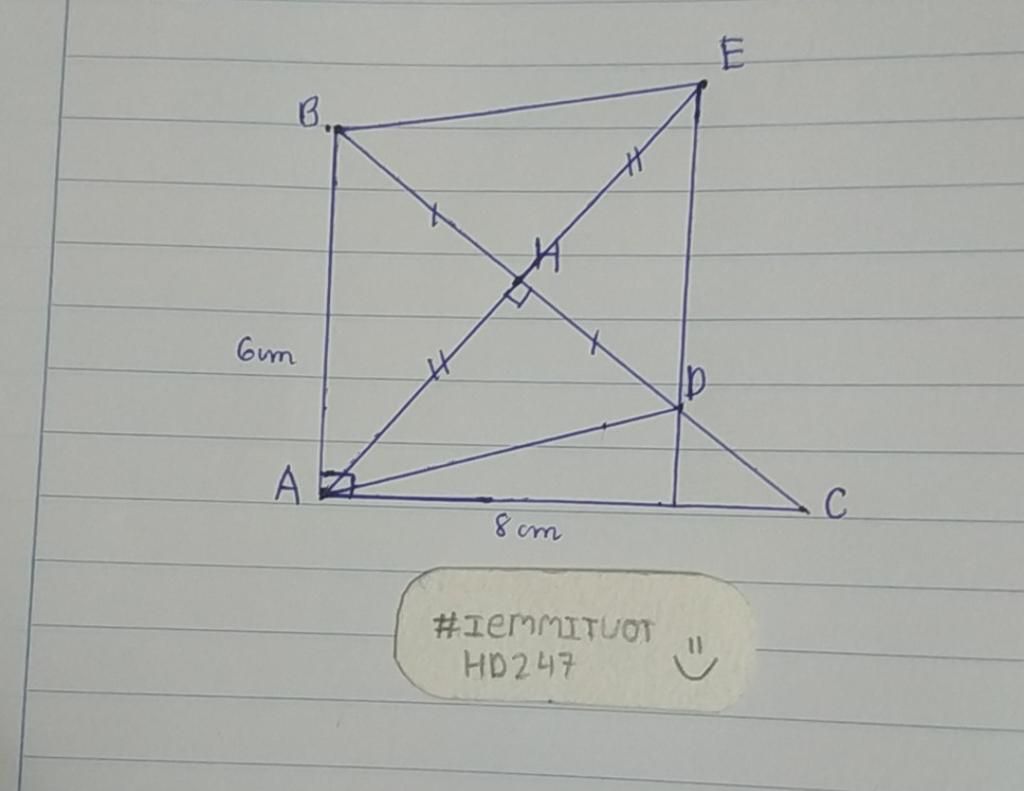 E
B
H
6cm
D
A
C
8cm
#IEMMITUOT
HD247